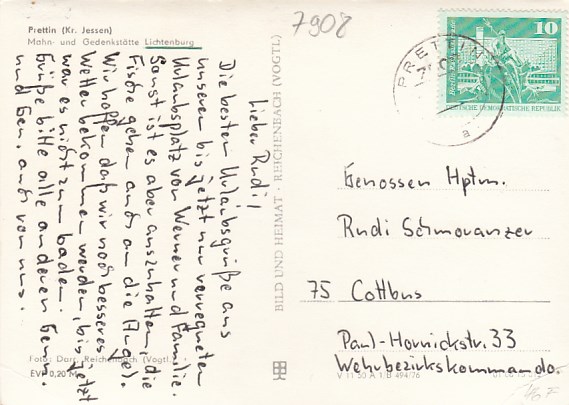 Prettin (Kr. Jessen)
Mahn- und Gedenkstätte Lichtenburg
7908
Lieber Rudi!
Die besten Urlaubsgrüße aus
unseren bis jetzt nur verregneten
Urlaubsplatz von Werner und Familie.
Sonst ist es aber auszuhalten, die
Fische gehen auch an die Angel.
Wir hoffen daß wir noch besseres
Wetter bekommen werden, bis jetzt
war es nicht zum baden.
Grüße bitte alle anderen Genn.
und Gen. auch von uns.
Foto: Darr, Reichenbach (Vogtl.)
EVP 0,20 M
BILD UND HEIMAT · REICHENBACH (VOGTL)
PRETTIN
a
10
DEUTSCHE DEMOKRATISCHE REPUBLIK
Genossen Hptm.
Rudi Schmovanzer
75 Cottbus
Paul-Hornickstr. 33
Wehrbezirkskommando.
V 11 50 A 1/B 494/76